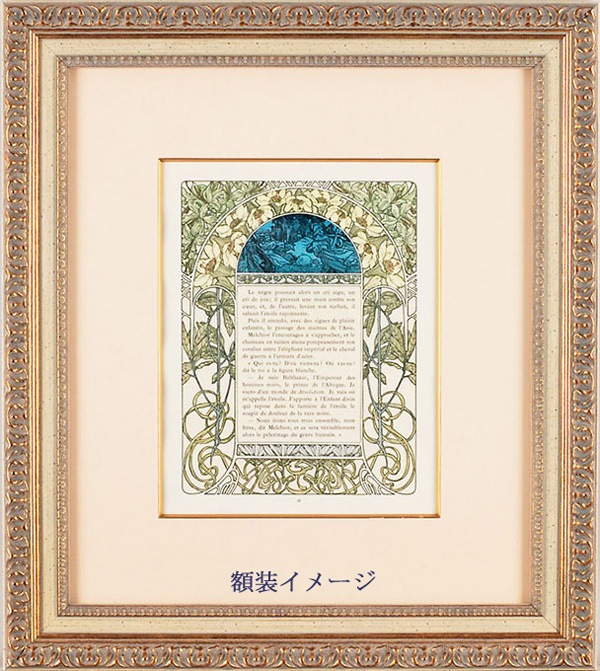 Le nègre poussait alors un cri aigu, un
cri de joie; il pressait une main contre son
cœur, et, de l'autre, levant son turban, il
saluait l'étoile rayonnante.
Puis il attendit, avec des signes de plaisir
enfantin, le passage des maîtres de l'Asie.
Melchior l'encouragea à s'approcher, et le
chameau en ruines mena pompeusement son
cavalier entre l'éléphant impérial et le cheval
de guerre à l'armure d'acier.
« Qui es-tu? D'où viens-tu? Où vas-tu?
dit le roi à la figure blanche.
— Je suis Balthazar, l'Empereur des
hommes noirs, le prince de l'Afrique. Je
viens d'un monde de désolation. Je vais où
m'appelle l'étoile. J'apporte à l'Enfant divin
qui repose dans la lumière de l'étoile le
soupir de douleur de la race noire.
— Nous irons tous trois ensemble, mon
frère, dit Melchior, et ce sera véritablement
alors le pèlerinage du genre humain. »
額装イメージ